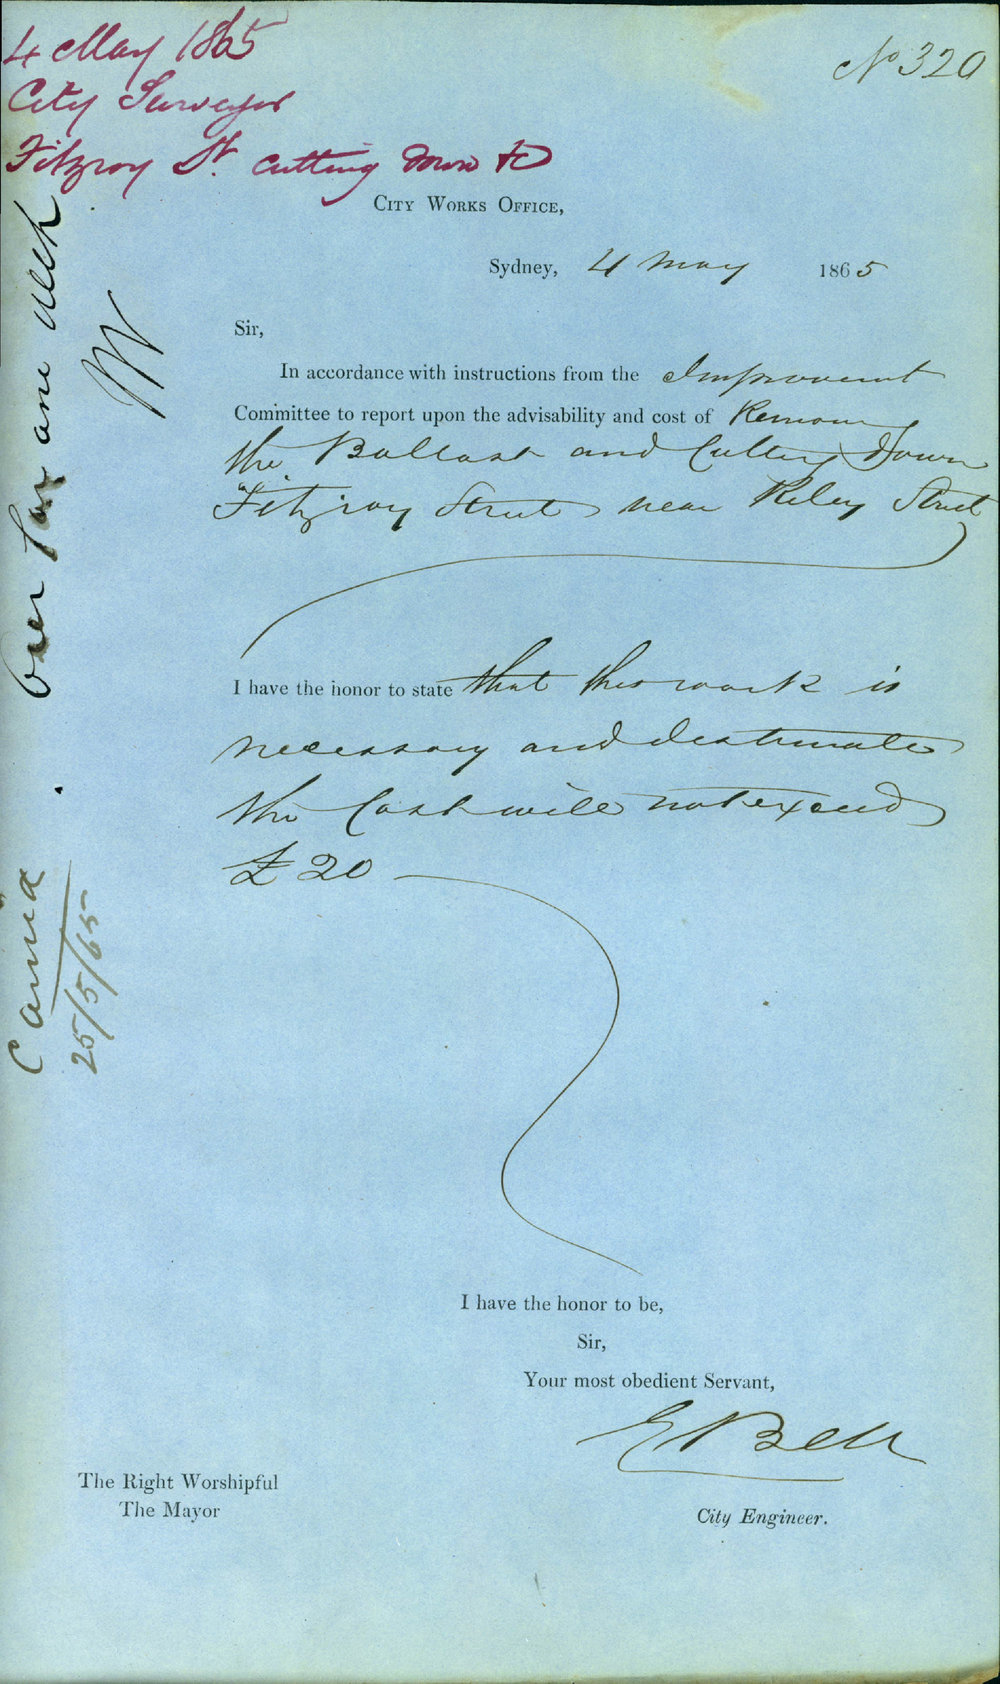 4 May 1865
City Surveyor
Fitzroy St. cutting down to
No 320
City Works Office,
Sydney, 4 May 1865
Sir,
In accordance with instructions from the Improvement
Committee to report upon the advisability and cost of Removing
the Ballast and Cutting Down
Fitzroy Street near Riley Street
I have the honor to state that this work is
necessary and I estimate
the Cost will not exceed
£20
I have the honor to be,
Sir,
Your most obedient Servant,
E Bell
City Engineer.
The Right Worshipful
The Mayor
Over for one week
W
25/5/65